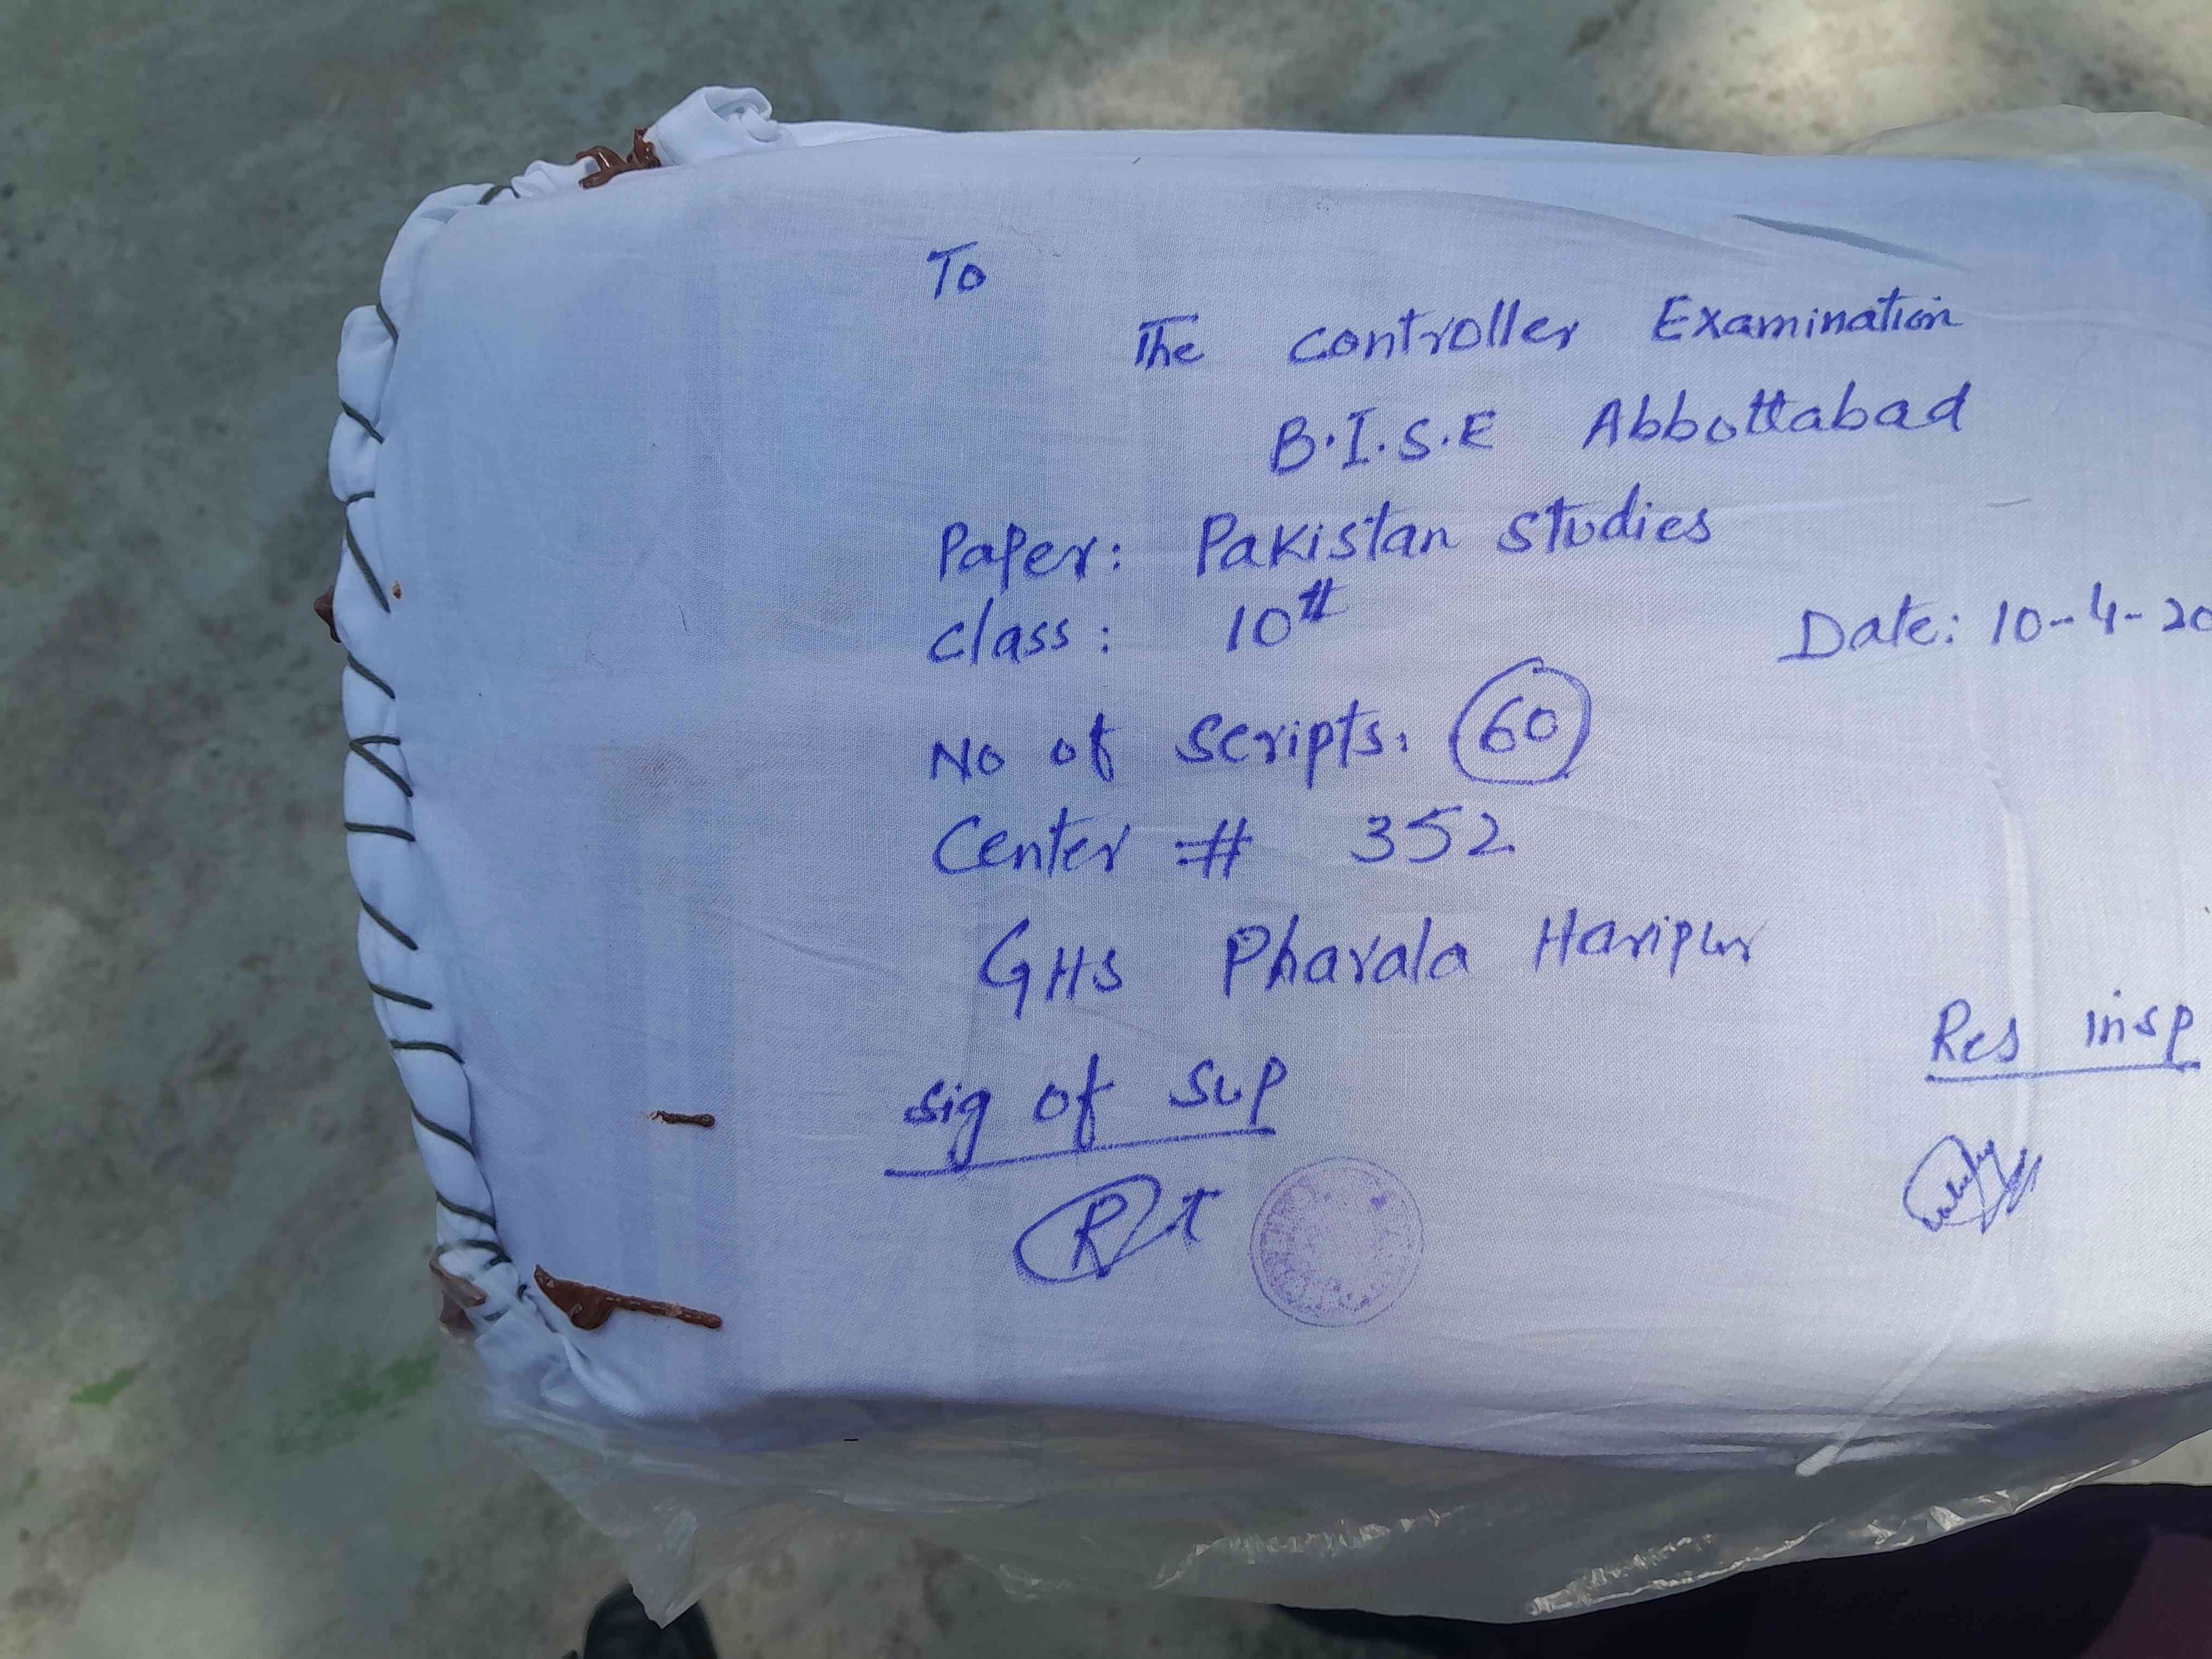 To
The controller Examination
B.I.S.E Abbottabad
Paper: Pakistan Studies
class: 10th
Date: 10-4-20
No of Scripts. 60
Center # 352
GHS Pharala Haripur
Res insp
sig of sup